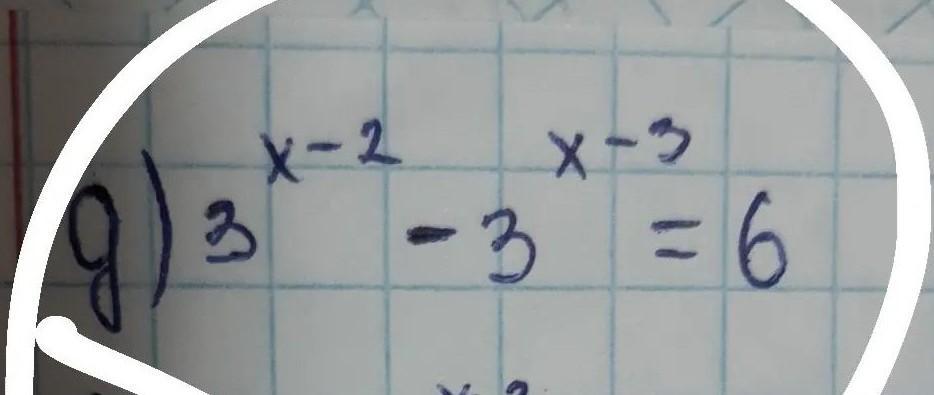 д) 3^{x-2} - 3^{x-3} = 6